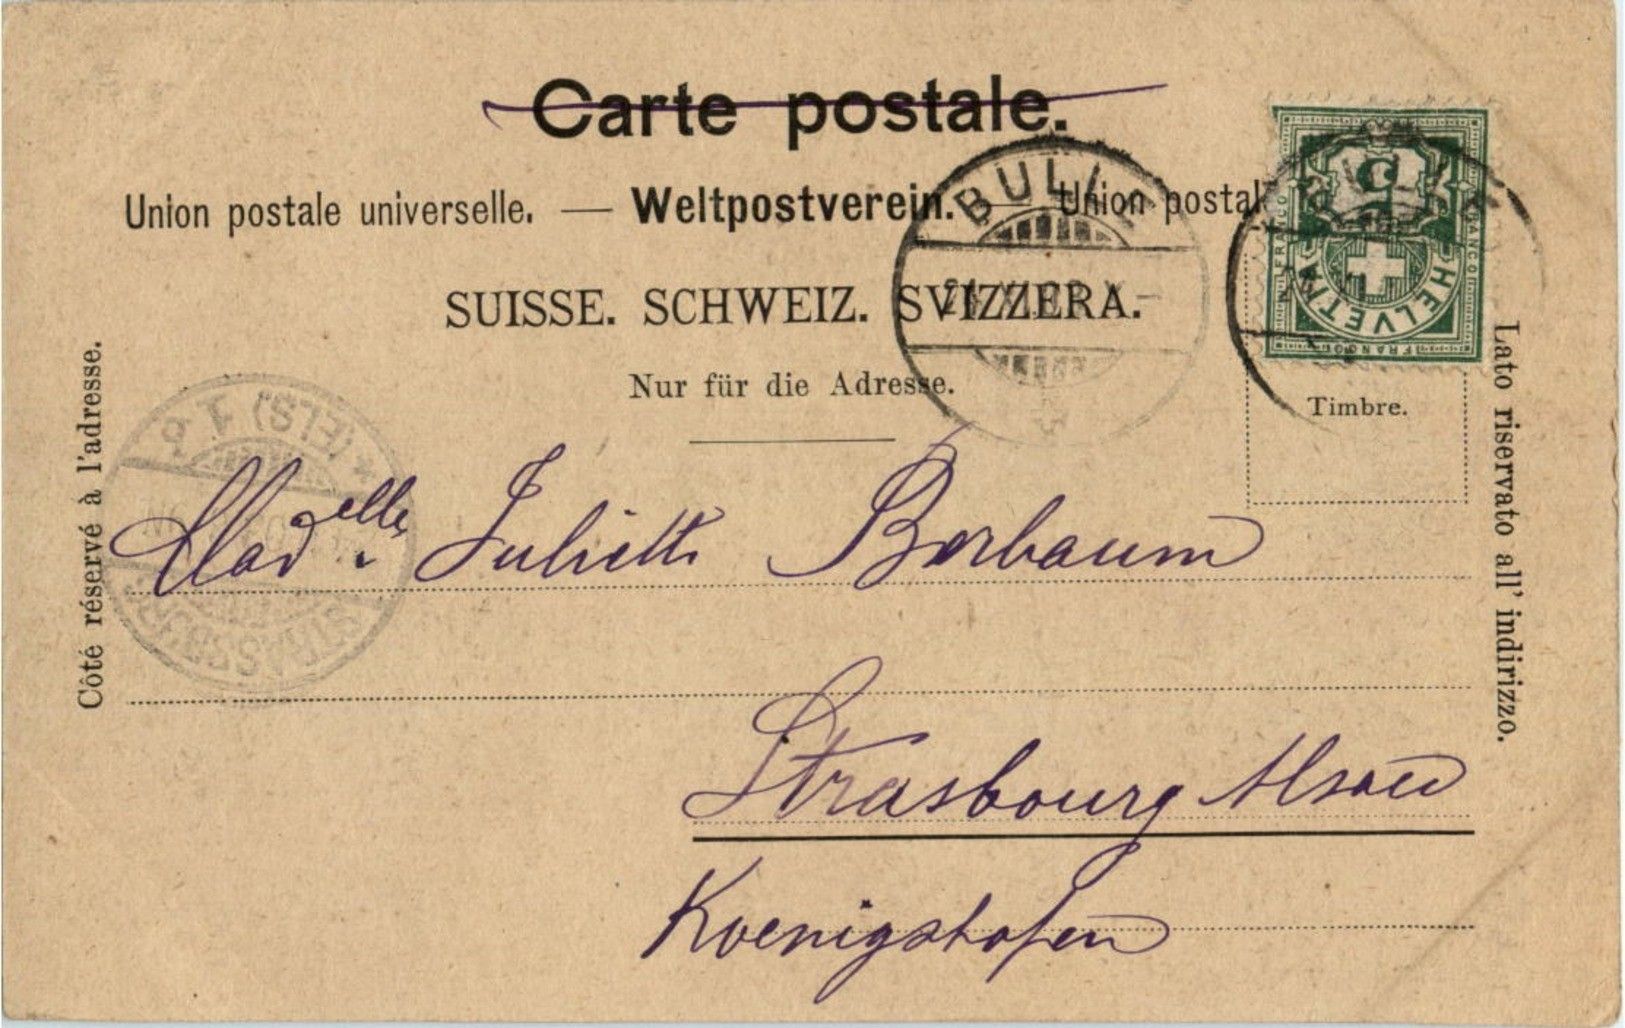 Carte postale.
Union postale universelle. — Weltpostverein. — Union postal
SUISSE. SCHWEIZ. SVIZZERA.
Nur für die Adresse.
BULLE
5
HELVETIA
FRANCO
FRANCO
FRANCO
Timbre.
Côté réservé à l'adresse.
Lato riservato all' indirizzo.
STRASSBURG
* (ELS) 1
Madelle Juliette Berbaum
Strasbourg Alsace
Koenigshofen